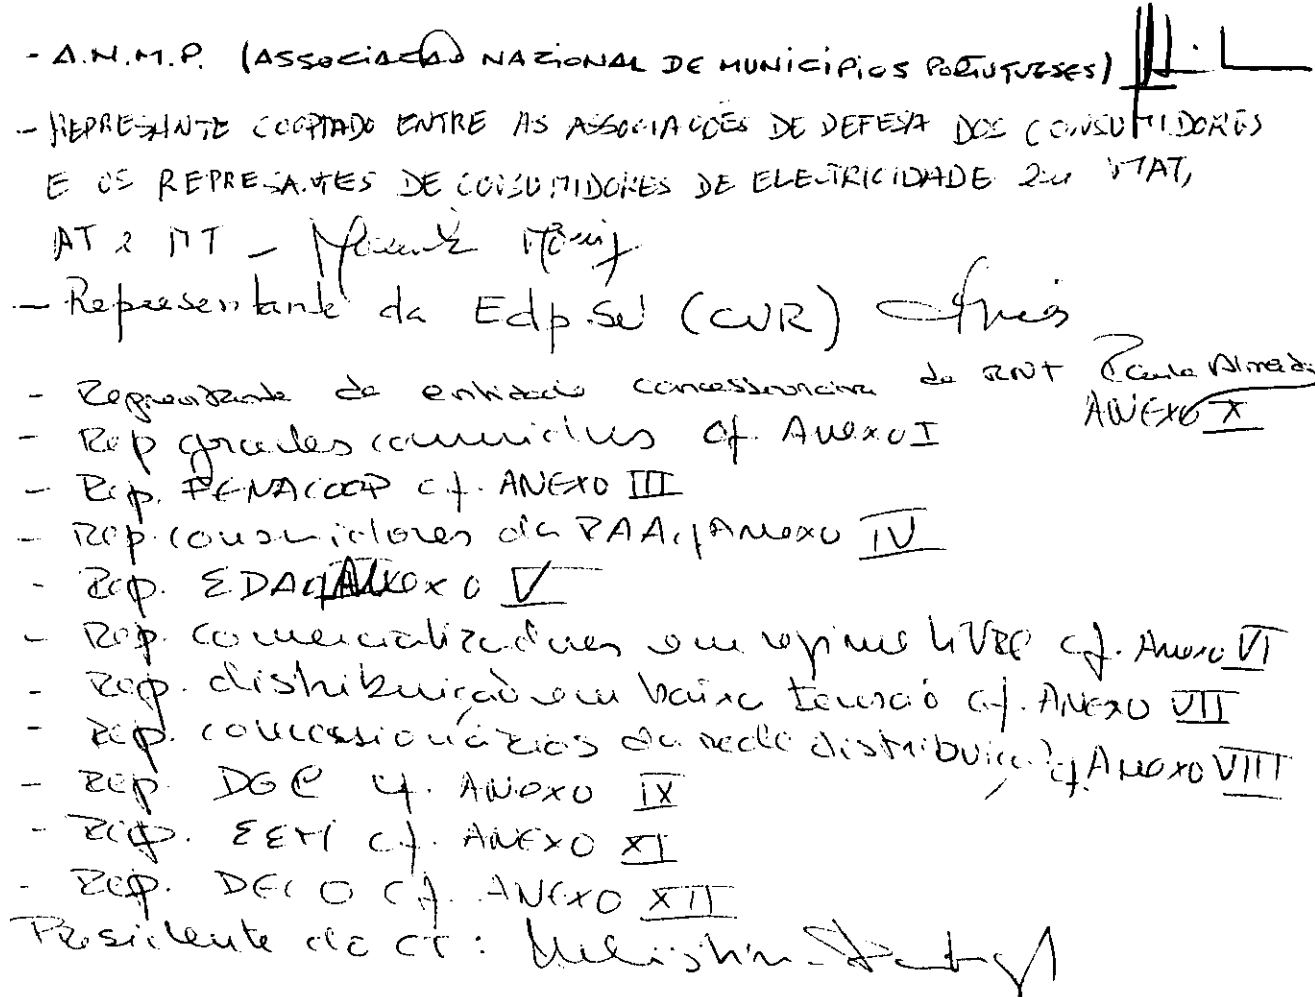 - A.N.M.P. (ASSOCIAÇÃO NAZIONAL DE MUNICIPIOS PORTUGUESES)
- REPRESANTE COOPTADO ENTRE AS ASSOCIAÇÕES DE DEFESA DOS CONSUMIDORES
E OS REPRESANTES DE CONSUMIDORES DE ELETRICIDADE em MAT,
AT e MT -
- Representante da Edp.Su (CUR)
- Representante da entidade concessionária da RNT Paula Almeida
ANEXO X
- Rep grandes consumidores cf. Anexo I
- Rep. FENACOOP cf. ANEXO III
- Rep. consumidores da RAA cf Anexo IV
- Rep. EDA cf Anexo V
- Rep. comercializadores em regime livre cf. Anexo VI
- Rep. distribuição em baixa tensão cf. ANEXO VII
- Rep. concessionárias da rede distribuiç. cf Anexo VIII
- Rep. DGC cf. Anexo IX
- Rep. EEM cf. ANEXO XI
- Rep. DECO cf. ANEXO XII
Presidente do CT: